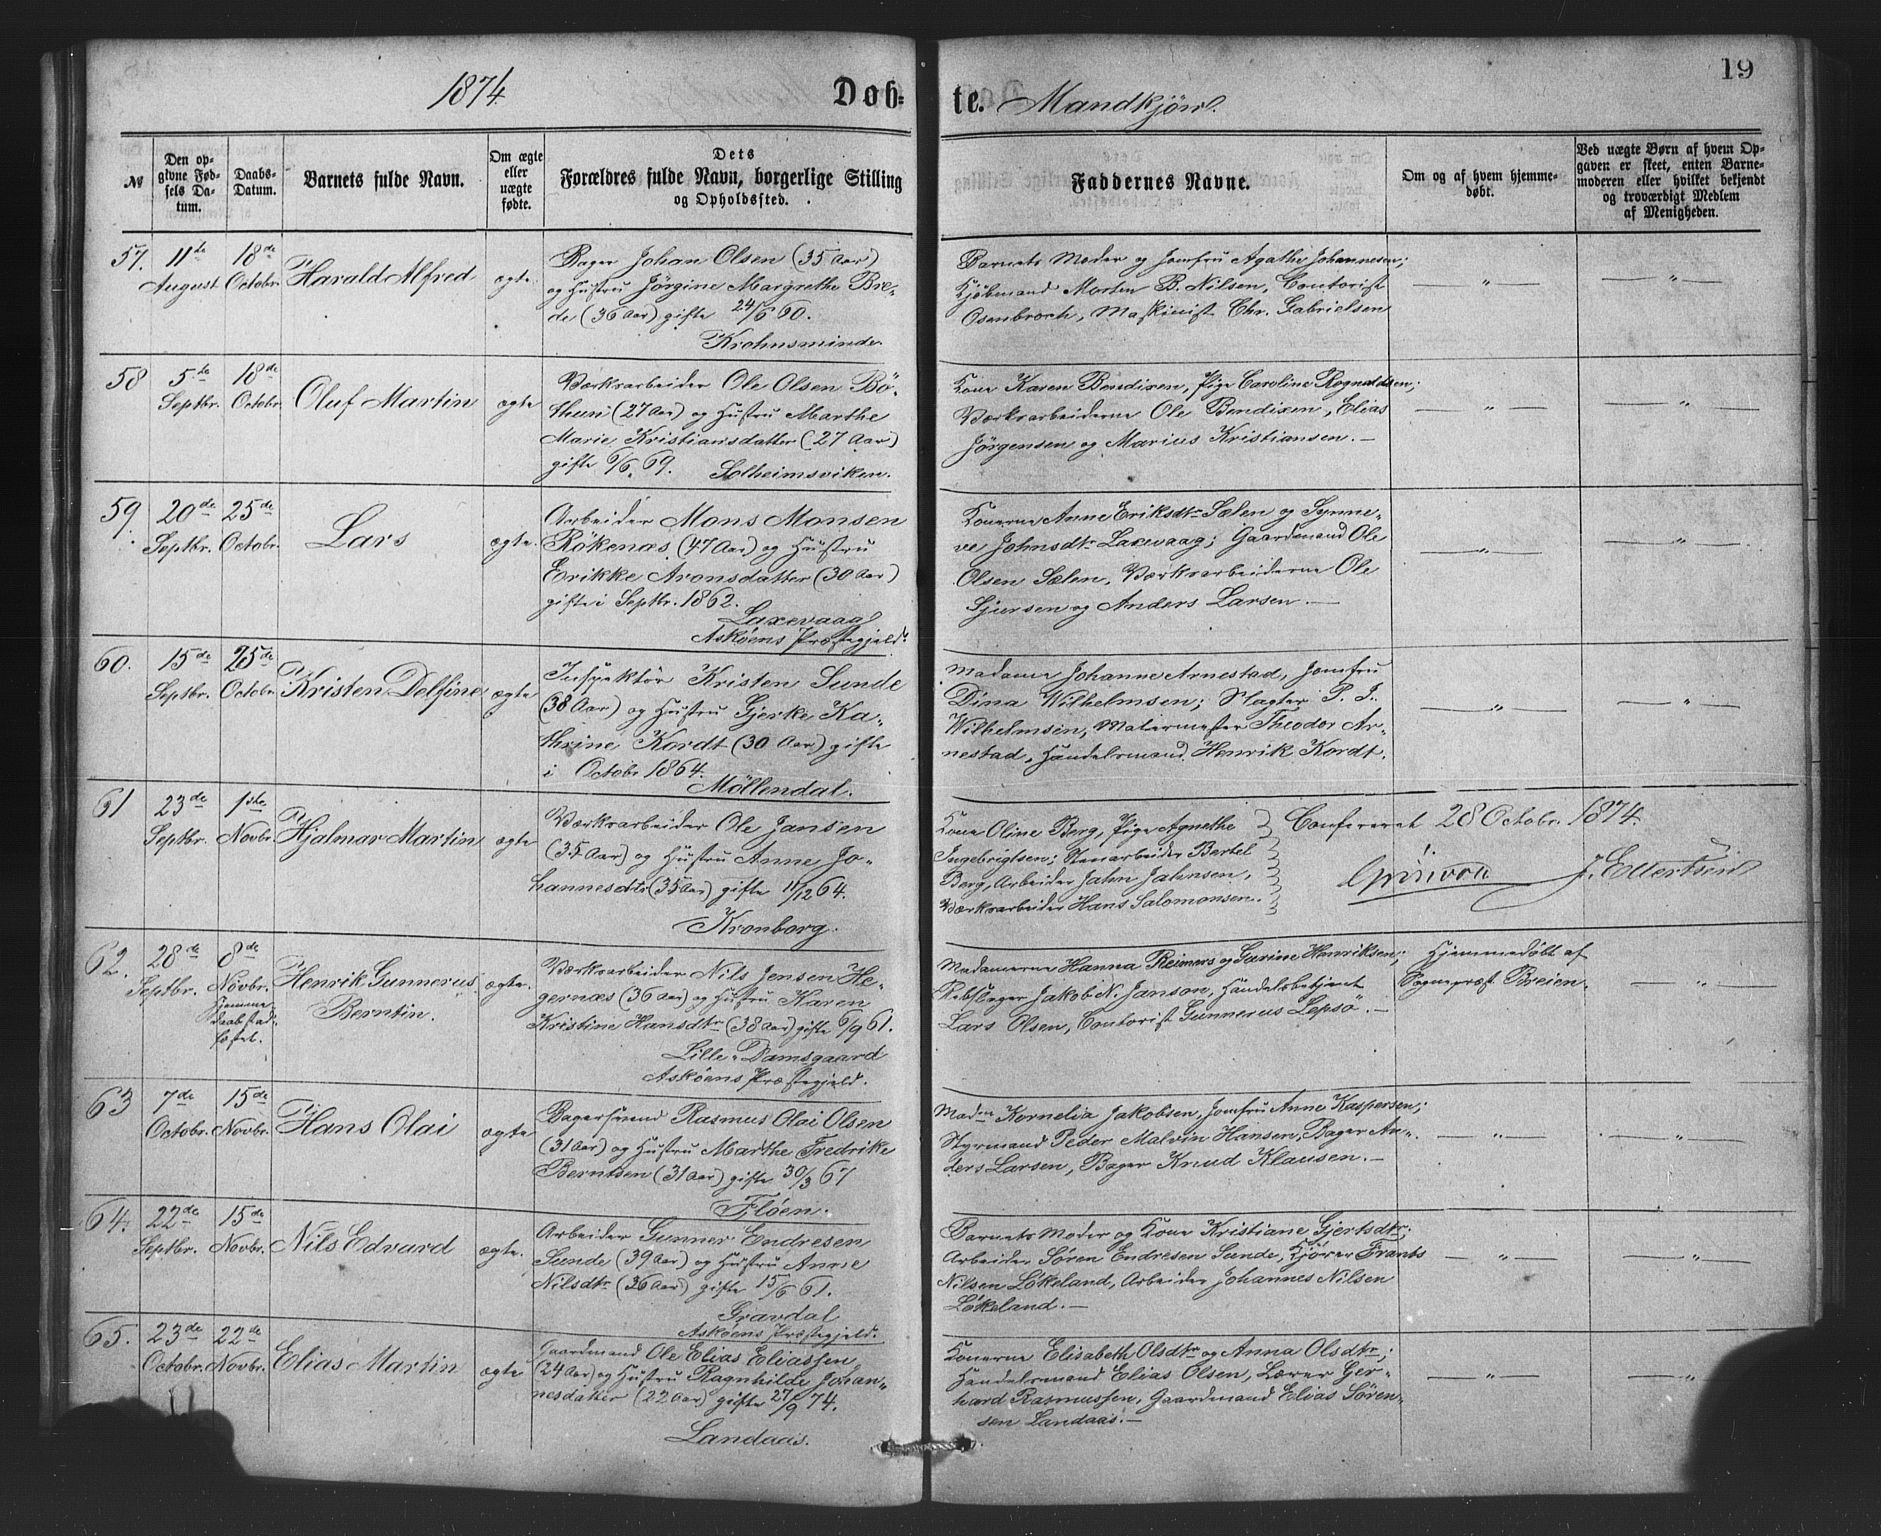 19
1874.
Døb-
te. Mandkjøn.
№
Den op-
givne Fød-
sels Da-
tum.
Daabs-
Datum.
Barnets fulde Navn.
Om ægte
eller
uægte
fødte.
Dets
Forældres fulde Navn, borgerlige Stilling
og Opholdssted.
Faddernes Navne.
Om og af hvem hjemme-
døbt.
Ved uægte Børn af hvem Op-
gaven er skeet, enten Barne-
moderen eller hvilket bekjendt
og troværdigt Medlem
af Menigheden.
57.
11te
August
18de
Octobr.
Harald Alfred
ægte.
Bager Johan Olsen (35 Aar)
og Hustru Jörgine Margrethe Bre-
de (36 Aar) gifte 24/6 60.
Krohnsminde.
Barnets Moder og Jomfru Agathe Johannesen;
Kjøbmand Morten B. Nilsen, Contorist
Osenbroch, Maskinist Chr. Gabrielsen
— " —
— " —
58
5te
Septbr.
18de
Octobr.
Oluf Martin
ægte
Værksarbeider Ole Olsen Bö-
thun (27 Aar) og Hustru Marthe
Marie Kristiansdatter (27 Aar)
gifte 6/6 69. Solheimsviken.
Kone Karen Bendixen, Pige Caroline Rognaldsen;
Værksarbeiderne Ole Bendixen, Elias
Jörgensen og Marius Kristiansen. —
— " —
— " —
59.
20de
Septbr.
25de
Octobr.
Lars
ægte.
Arbeider Mons Monsen
Rökenæs (47 Aar) og Hustru
Erikke Aronsdatter (30 Aar)
gifte i Septbr. 1862.
Laxevaag
Askøens Præstegjeld.
Konerne Anne Eriksdtr Sælen og Synne-
ve Johnsdtr Laxevaag; Gaardmand Ole
Olsen Sælen, Værksarbeiderne Ole
Sjursen og Anders Larsen. —
— " —
— " —
60.
15de
Septbr.
25de
Octobr.
Kristen Delfine
ægte
Inspektör Kristen Sunde
(38 Aar) og Hustru Gjerke Ka-
thrine Kordt (30 Aar) gifte
i Octobr 1864.
Möllendal.
Madame Johanne Arnestad, Jomfru
Dina Wilhelmsen; Slagter P. J.
Wilhelmsen, Malermester Theodor Ar-
nestad, Handelsmand Henrik Kordt.
— " —
— " —
61
23de
Septbr.
1ste
Novbr.
Hjalmar Martin
ægte
Værksarbeider Ole Jansen
(35 Aar) og Hustru Anne Jo-
hannesdtr (35 Aar) gifte 11/12 64.
Kronborg.
Kone Oline Berg, Pige Agnethe
Ingebrigtsen; Stenarbeider Bertel
Berg, Arbeider Jahn Jahnsen,
Værksarbeider Hans Salomonsen.
Confereret 28 Octobr. 1874.
62.
28de
Septbr.
8de
Novbr.
hjemme
daab stad-
fæstet.
Henrik Gunnerus
Berntin.
ægte.
Værksarbeider Nils Jensen He-
gernæs (36 Aar) og Hustru Karen
Kristine Hansdtr (38 Aar) gifte 6/9 61.
Lille-Damsgaard
Askøens Præstegjeld.
Madamerne Hanna Reimers og Gurine Henriksen;
Rebslager Jakob N. Janson, Handelsbetjent
Lars Olsen, Contorist Gunnerus Lepsö. —
Hjemmedøbt af
Sognepræst Breien.
— " —
63
7de
Octobr.
15de
Novbr.
Hans Olai
ægte
Bagersvend Rasmus Olai Olsen
(31 Aar) og Hustru Marthe Fredrike
Berntsen (31 Aar) gifte 30/3 67
Flöen.
Madm Kornelia Jakobsen, Jomfru Anne Kaspersen;
Styrmand Peder Malvin Hansen, Bager An-
ders Larsen, Bager Knud Klausen. —
— " —
— " —
64.
22de
Septbr.
15de
Novbr.
Nils Edvard
ægte.
Arbeider Gunner Endresen
Sunde (39 Aar) og Hustru Anne
Nilsdtr (36 Aar) gifte 15/6 61.
Gravdal
Askøens Præstegjeld.
Barnets Moder og Kone Kristiane Gjertsdtr;
Arbeider Sören Endresen Sunde, Kjörer Frants
Nilsen Lökeland, Arbeider Johannes Nilsen
Lökeland. —
— " —
— " —
65.
23de
Octobr.
22de
Novbr.
Elias Martin
ægte
Gaardmand Ole Elias Eliassen
(24 Aar) og Hustru Ragnhilde Johan-
nesdatter (22 Aar) gifte 27/9 74.
Landaas.
Konerne Elisabeth Olsdtr og Anna Olsdtr;
Handelsmand Elias Olsen, Lærer Ger-
hard Rasmussen, Gaardmand Elias Sören-
sen Landaas. —
— " —
— " —